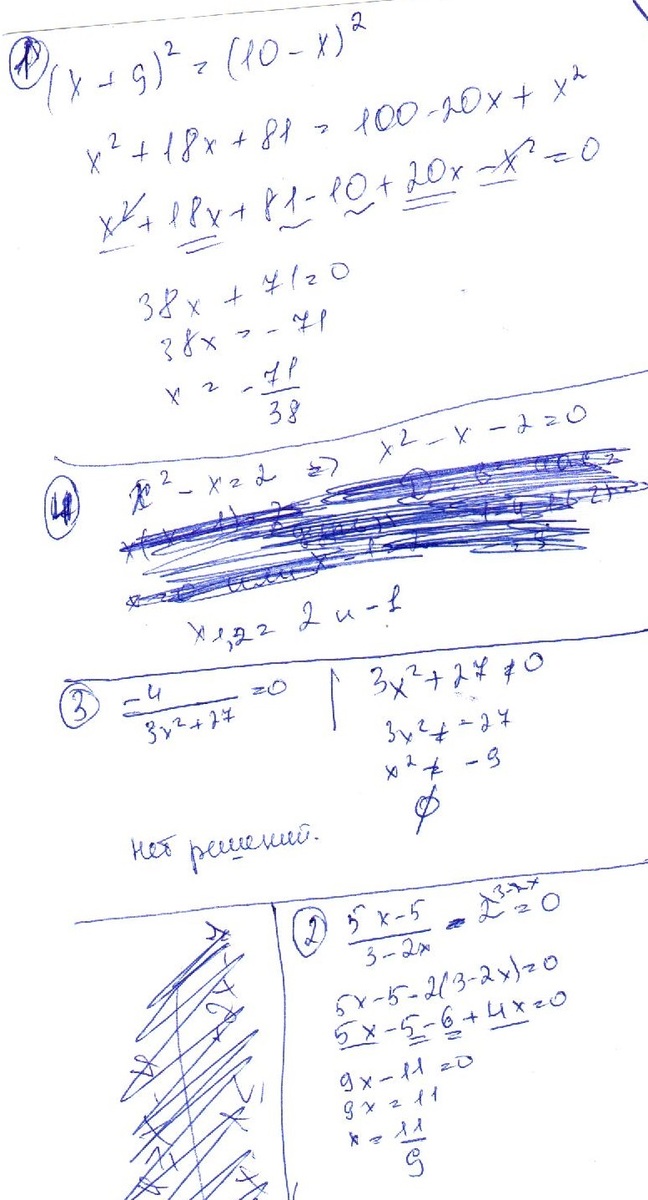 1 (x + 9)² = (10 - x)²
x² + 18x + 81 = 100 - 20x + x²
x² + 18x + 81 - 10 + 20x - x² = 0
38x + 71 = 0
38x = - 71
x = - 71/38
4 x² - x = 2 => x² - x - 2 = 0
x1,2 = 2 и -1
3 -4/(3x²+27) = 0 | 3x² + 27 ≠ 0
3x² ≠ - 27
x² ≠ - 9
∅
нет решений.
2 (5x-5)/(3-2x) - 2^(3-2x) = 0
5x - 5 - 2(3-2x) = 0
5x - 5 - 6 + 4x = 0
9x - 11 = 0
9x = 11
x = 11/9